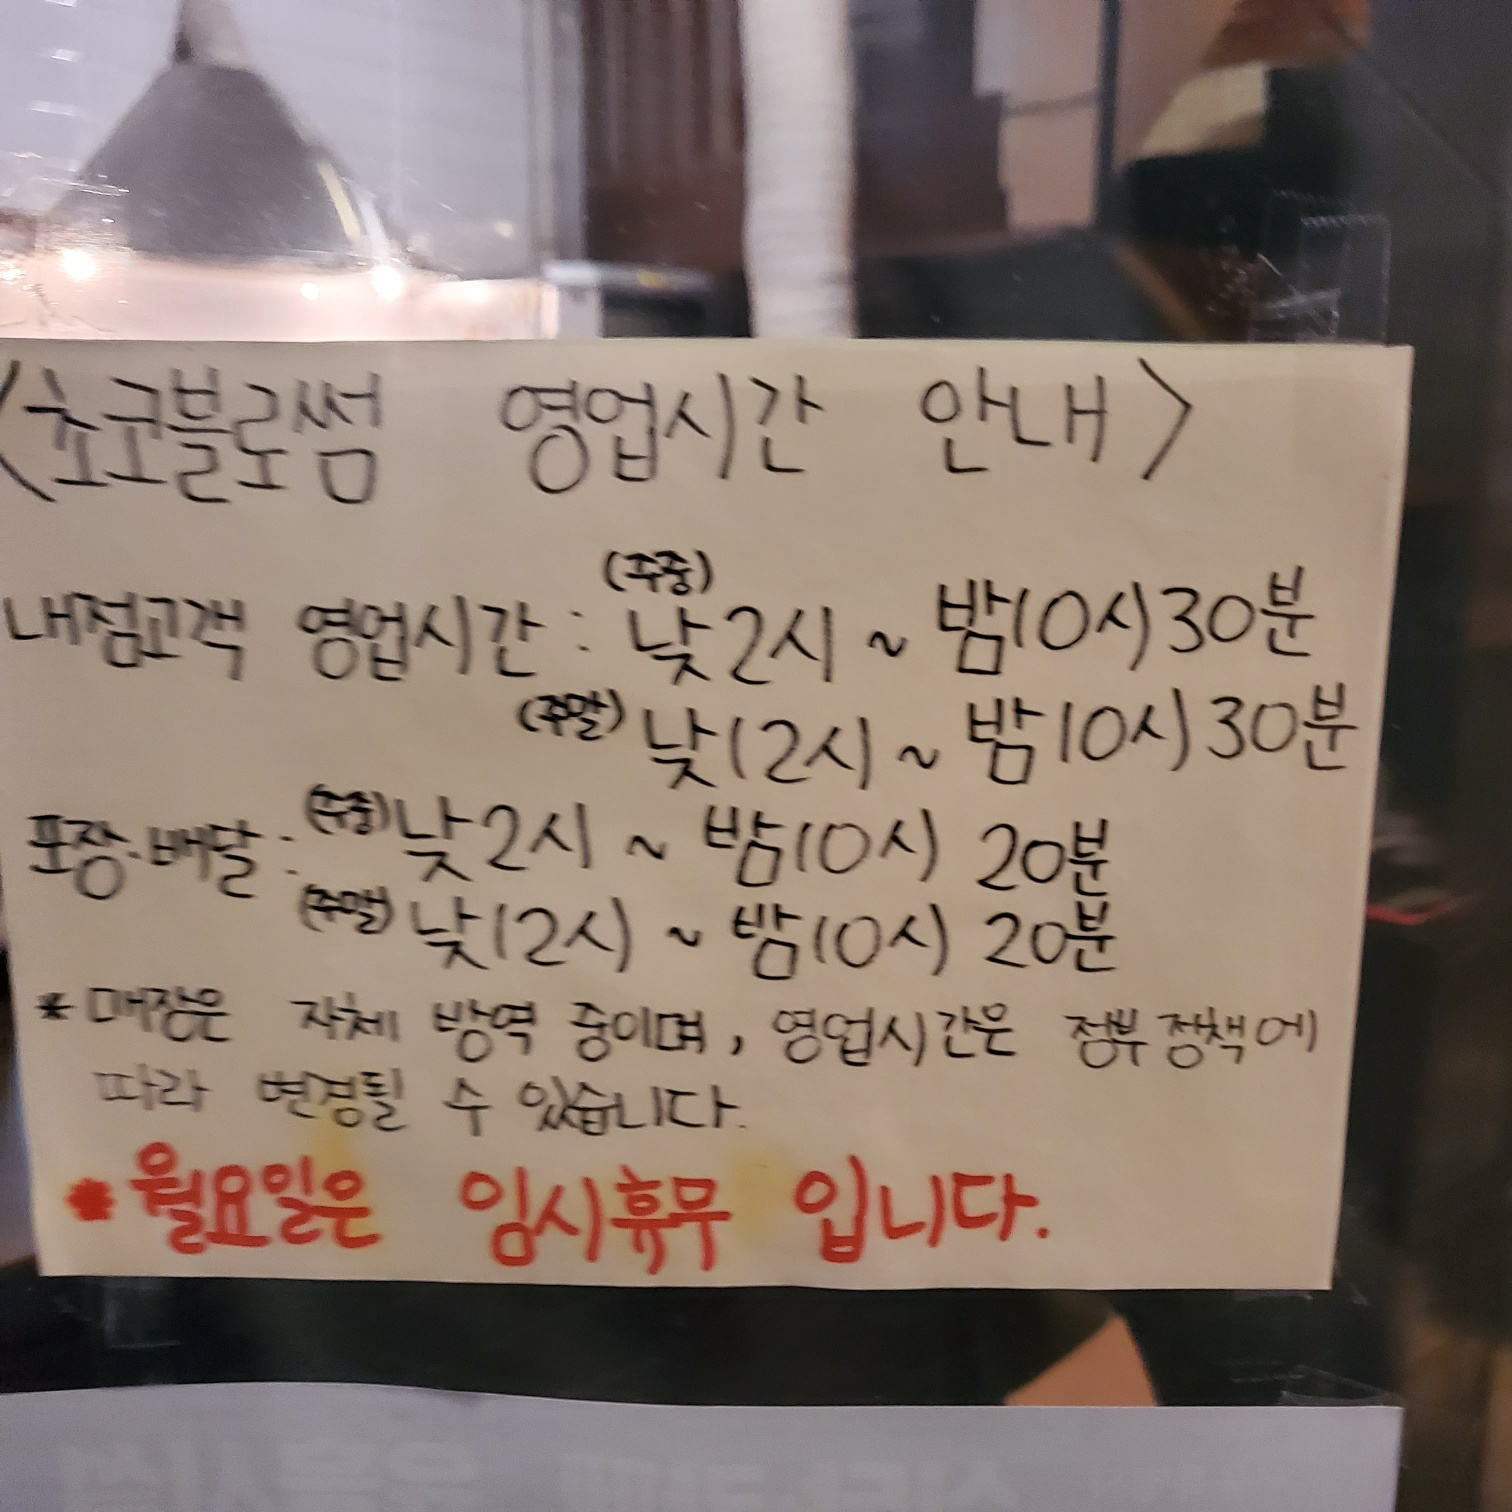 <초코블로썸 영업시간 안내>
(주중)
내점고객 영업시간 : 낮2시 ~ 밤10시30분
(주말) 낮12시 ~ 밤10시30분
포장·배달 : (주중) 낮2시 ~ 밤10시 20분
(주말) 낮12시 ~ 밤10시 20분
* 매장은 자체 방역 중이며, 영업시간은 정부 정책에
따라 변경될 수 있습니다.
* 월요일은 임시휴무 입니다.